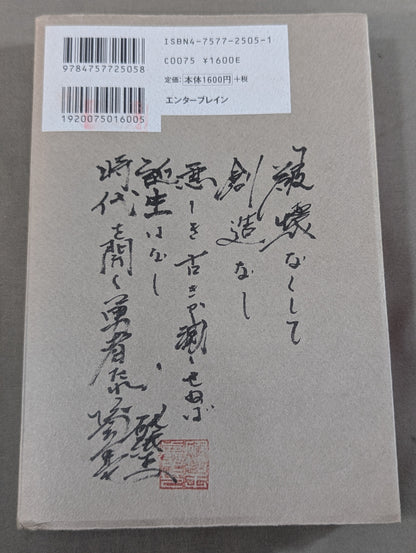 ISBN4-7577-2505-1
9784757725058
C0075 ¥1600E
定価:本体1600円+税
1920075016005
エンターブレイン
「破壊なくして
創造なし
悪しき古きが滅せねば
誕生はなし
時代を開く勇者たれ